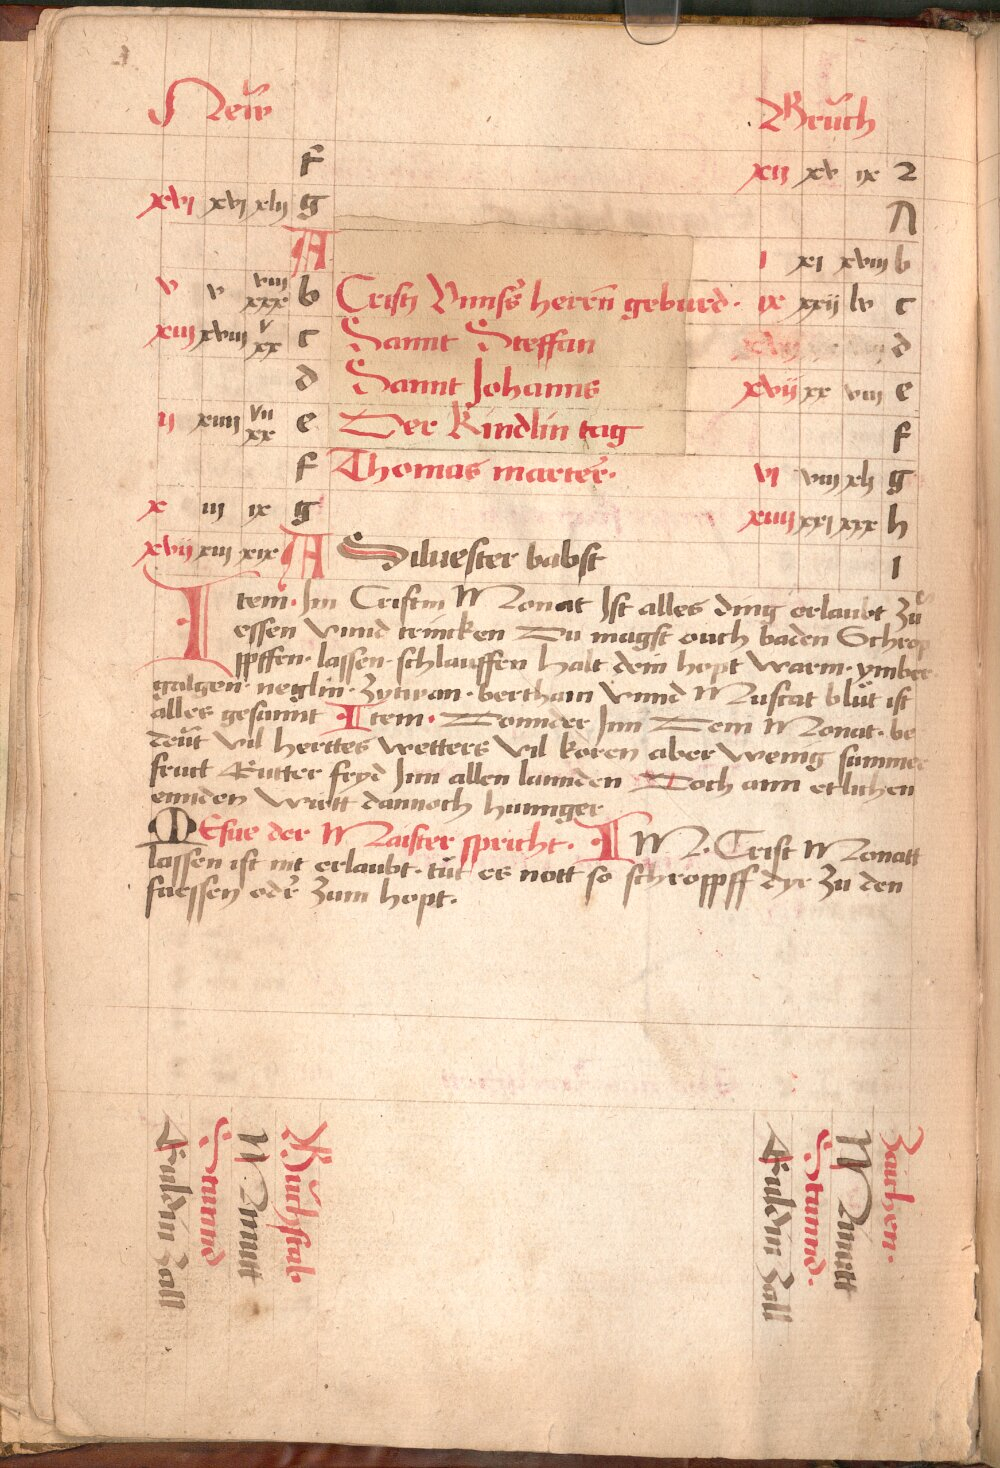 Neẅ Brüch
f xii xv ix z
xvi xvi xlij g A
A i xi xviii b
v v viii xxx b Cristi Vnnsers herrn geburd · ix xxij lv c
xiii xviii v xx c Sannt Steffan d
d Sannt Johanns xvij xx viii e
ii xiiii vii xx e Der Kindlin tag f
f Thomas marter · vi viii xlj g
x iii ix g xiiii xxi xxx h
xvij xiii xix A Siluester babst i
Item · Jm Cristin Monat Jst alles ding erlaubt Zů
essen vnnd trincken Du magst ouch baden Schrop
pffen · lassen · schlauffen halt dein hopt warm · ymber
galgen · neglin · Zytwan · bertham vnnd Muscat blůt ist
alles gesunnt Item · Donnder Jnn Dem Monat · be
deüt vil herttes wetters vil koren aber wenig summer
fruct Lutter fryd Jnn allen lannden Doch ann etlichen
ennden wirtt dannoch hunnger
MEsue der Maister spricht · IM · Crist Monatt
lassen ist nit erlaubt · tůt es nott so schropff dyr Zu den
fuessen oder Zum hopt ·
Guldin Zall
Stunnd
Minutt
Bůchstab
Guldin Zall
Stunnd ·
Minutt
Zaichen ·